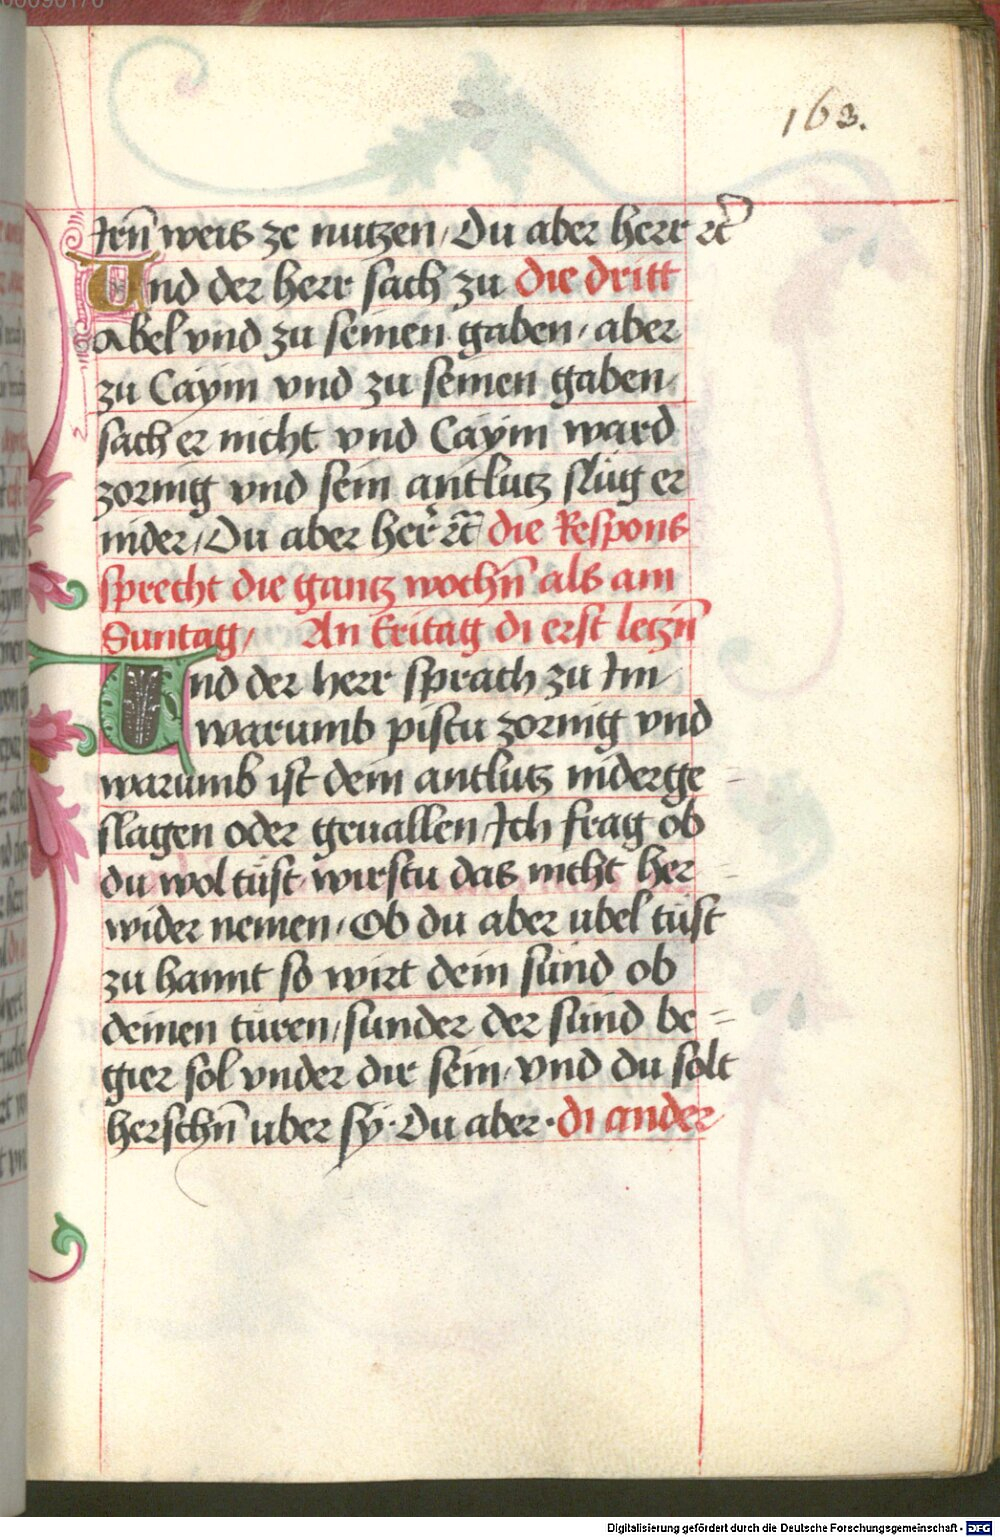 00090170
163.
Irn̄ weis ze nutzen/ Du aber herr ꝛc̄
Und der herr sach zu die dritt
Abel vnd zu seinen gaben/ aber
zu Caym vnd zu seinen gaben/
sach er nicht vnd Caym ward
zornig vnd sein antlutz slůg er
nider/ Du aber her̄ ꝛc̄ die Respons
sprecht die gantz wochn̄ als am
Suntag/ An Eritag di erst letzn̄
Und der herr sprach zu Im/
warumb pistu zornig vnd
warumb ist dein antlutz niderge
slagen oder geuallen/ Ich frag ob
du wol tůst/ wirstu das nicht her =
wider nemen/ Ob du aber ubel tůst
zu hannt so wirt dein sünd ob
deinen türen/ sunder der sünd be =
gier sol vnder dir sein/ vnd du solt
herschn̄ uber sy· Du aber· di ander
Digitalisierung gefördert durch die Deutsche Forschungsgemeinschaft - DFG